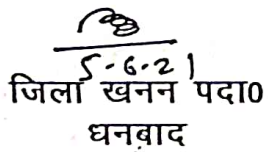 5-6-21
जिला खनन पदा0
धनबाद